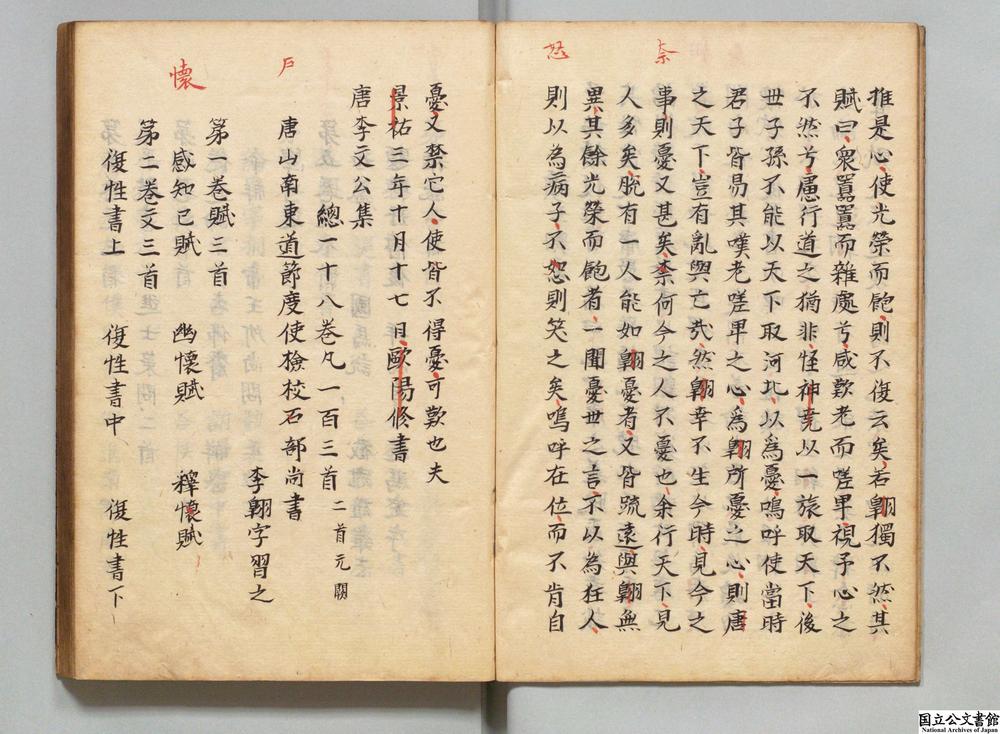 奈
怒
推是心使光榮而飽則不復云矣若翺獨不然其
賦曰衆囂囂而雜處兮咸歎老而嗟卑視予心之
不然兮慮行道之猶非怪神堯以一旅取天下後
世子孫不能以天下取河北以為憂嗚呼使當時
君子皆易其嘆老嗟卑之心為翺所憂之心則唐
之天下豈有亂與亡哉然翺幸不生今時見今之
事則憂又甚矣柰何今之人不憂也余行天下見
人多矣脫有一人能如翺憂者又皆疏遠與翺無
異其餘光榮而飽者一聞憂世之言不以為狂人
則以為病子不怒則笑之矣嗚呼在位而不肯自
戶
懷
憂又禁它人使皆不得憂可歎也夫
景祐三年十月十七日歐陽修書
唐李文公集
總一十八卷凡一百三首 二首元闕
唐山南東道節度使檢校石部尚書
李翺字習之
第一卷賦三首
感知己賦 幽懷賦 釋懷賦
第二卷文三首
復性書上 復性書中 復性書下
国立公文書館
National Archives of Japan